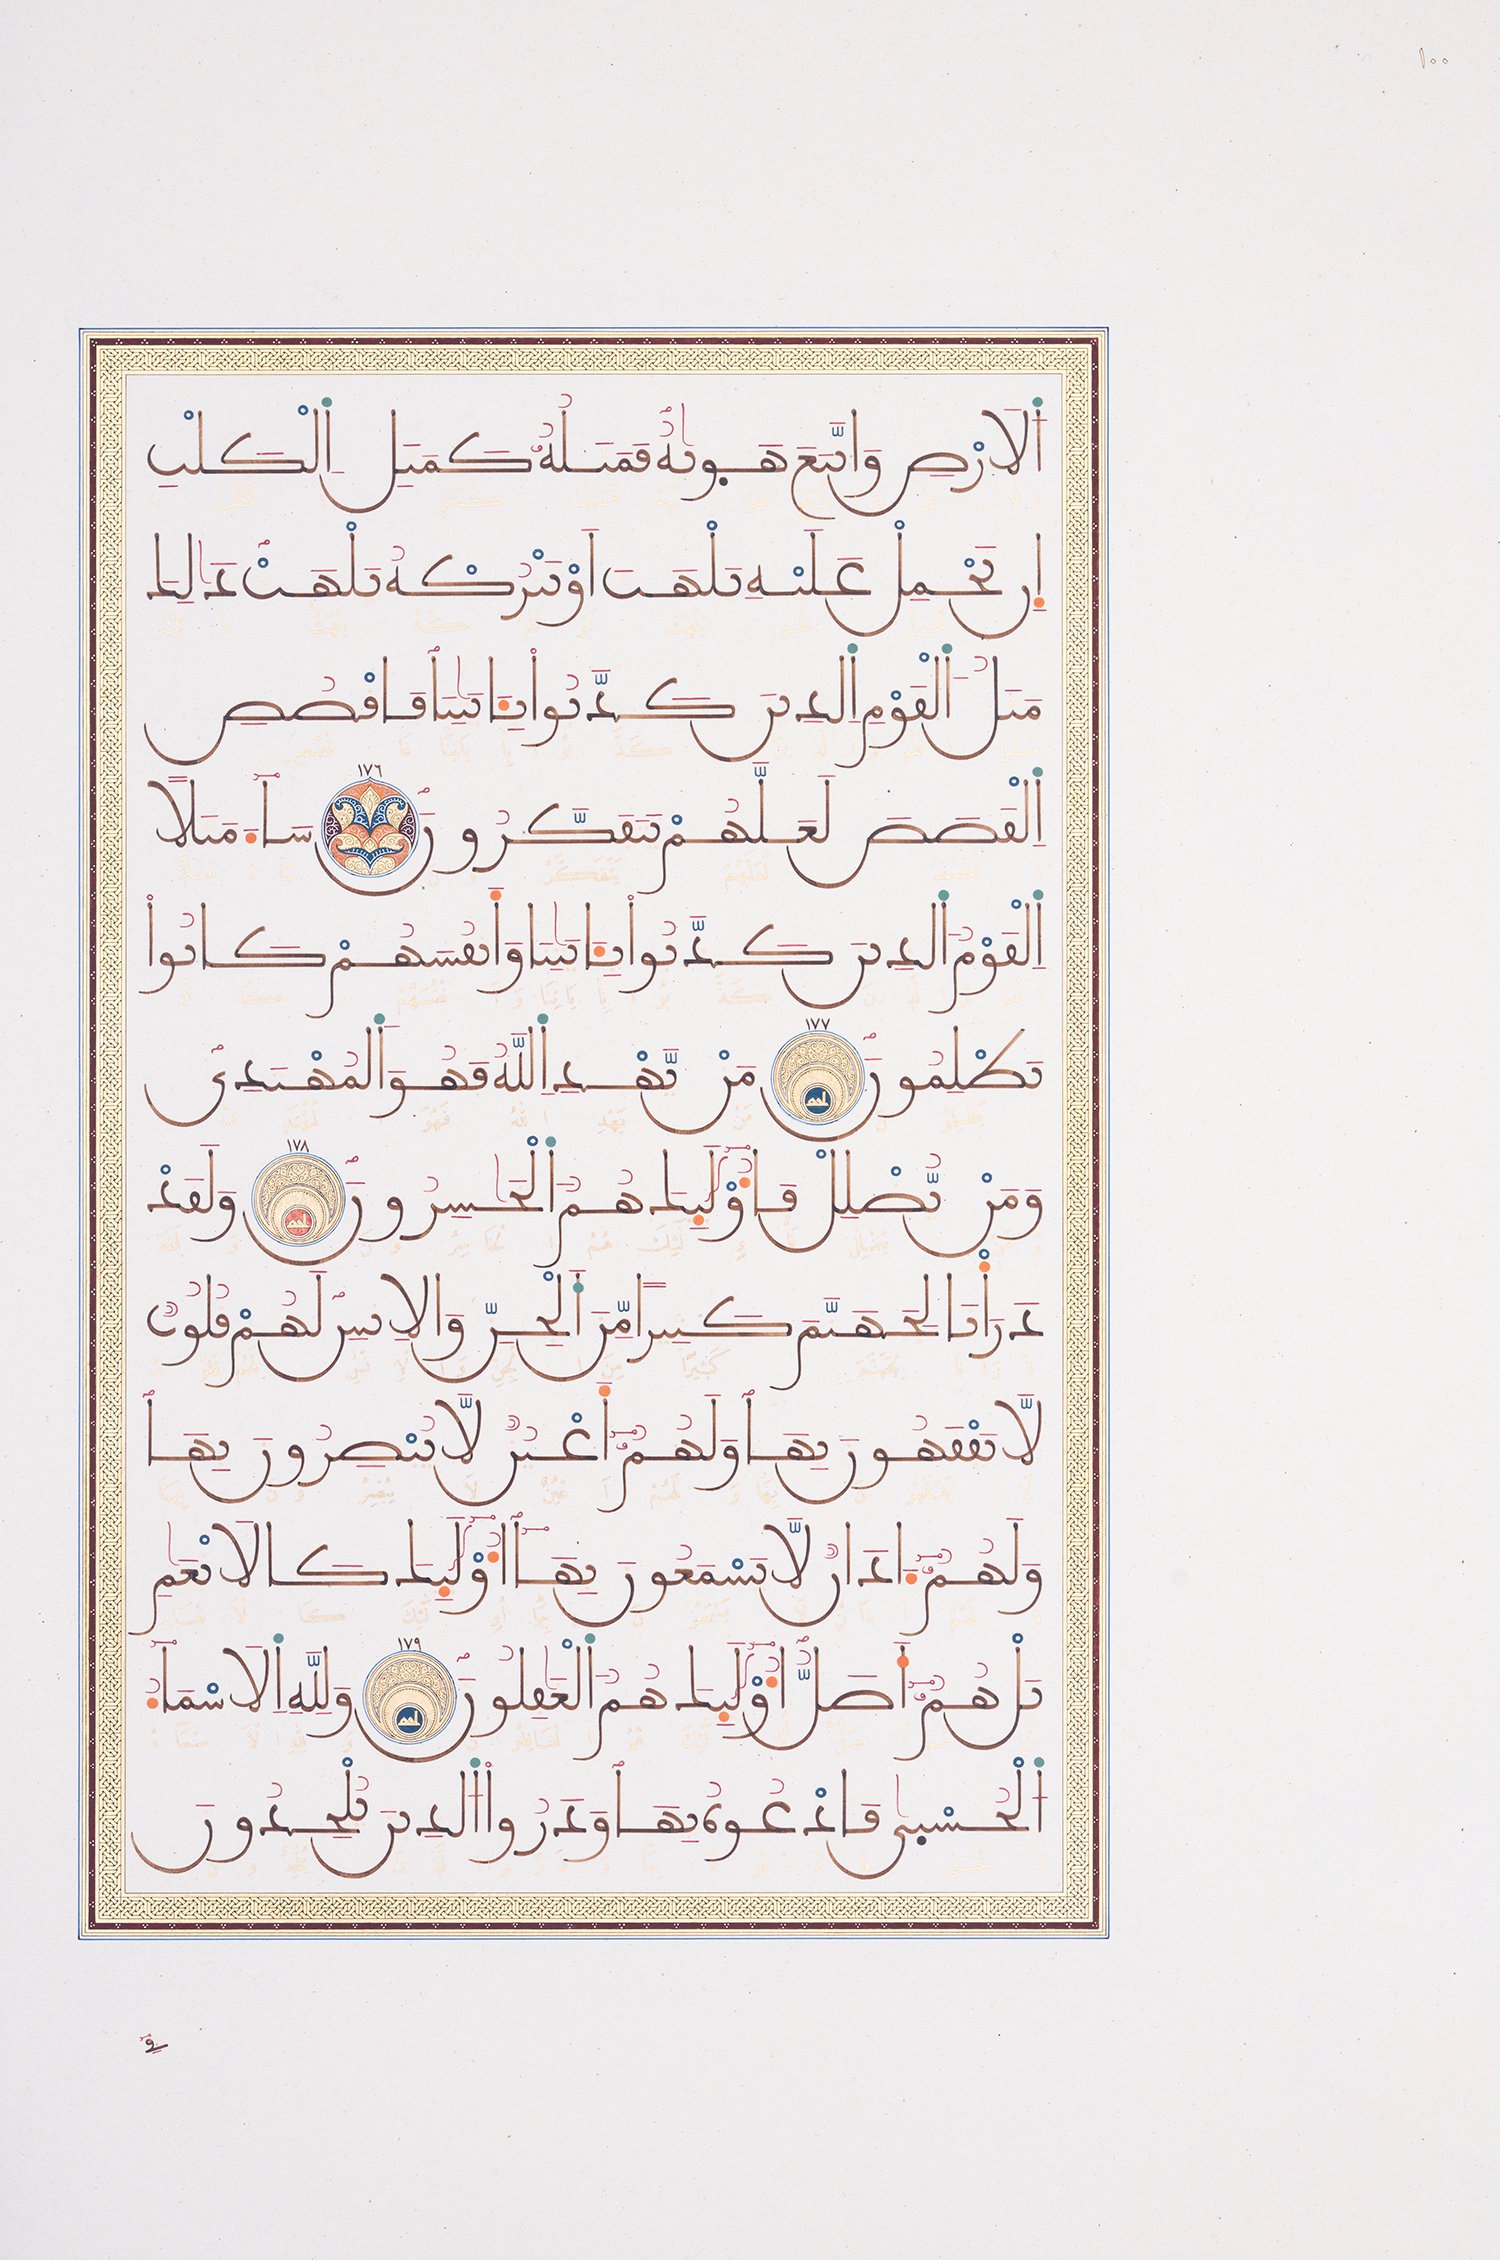 ١٠٠
ٱلْأَرْضِ وَٱتَّبَعَ هَوَىٰهُ فَمَثَلُهُۥ كَمَثَلِ ٱلْكَلْبِ
إِن تَحْمِلْ عَلَيْهِ يَلْهَثْ أَوْ تَتْرُكْهُ يَلْهَث ذَّٰلِكَ
مَثَلُ ٱلْقَوْمِ ٱلَّذِينَ كَذَّبُوا۟ بِـَٔايَٰتِنَا فَٱقْصُصِ
ٱلْقَصَصَ لَعَلَّهُمْ يَتَفَكَّرُونَ ١٧٦ سَآءَ مَثَلًا
ٱلْقَوْمُ ٱلَّذِينَ كَذَّبُوا۟ بِـَٔايَٰتِنَا وَأَنفُسَهُمْ كَانُوا۟
يَظْلِمُونَ ١٧٧ مَن يَهْدِ ٱللَّهُ فَهُوَ ٱلْمُهْتَدِى
وَمَن يُضْلِلْ فَأُو۟لَٰٓئِكَ هُمُ ٱلْخَٰسِرُونَ ١٧٨ وَلَقَدْ
ذَرَأْنَا لِجَهَنَّمَ كَثِيرًا مِّنَ ٱلْجِنِّ وَٱلْإِنسِ لَهُمْ قُلُوبٌ
لَّا يَفْقَهُونَ بِهَا وَلَهُمْ أَعْيُنٌ لَّا يُبْصِرُونَ بِهَا
وَلَهُمْ ءَاذَانٌ لَّا يَسْمَعُونَ بِهَآ أُو۟لَٰٓئِكَ كَٱلْأَنْعَٰمِ
بَلْ هُمْ أَضَلُّ أُو۟لَٰٓئِكَ هُمُ ٱلْغَٰفِلُونَ ١٧٩ وَلِلَّهِ ٱلْأَسْمَآءُ
ٱلْحُسْنَىٰ فَٱدْعُوهُ بِهَا وَذَرُوا۟ ٱلَّذِينَ يُلْحِدُونَ
فِىٓ